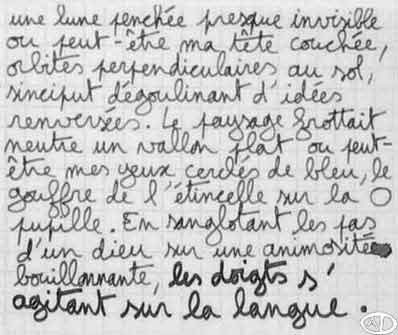 une lune penchée presque invisible
ou peut-être ma tête couchée,
orbites perpendiculaires au sol,
sinciput dégoulinant d'idées
renversées. Le paysage frottait
neutre un vallon plat ou peut-
être mes yeux cerclés de bleu, le
gouffre de l'étincelle sur la
pupille. En sanglotant les pas
d'un dieu sur une animosité
bouillonnante, les doigts s'
agitant sur la langue.